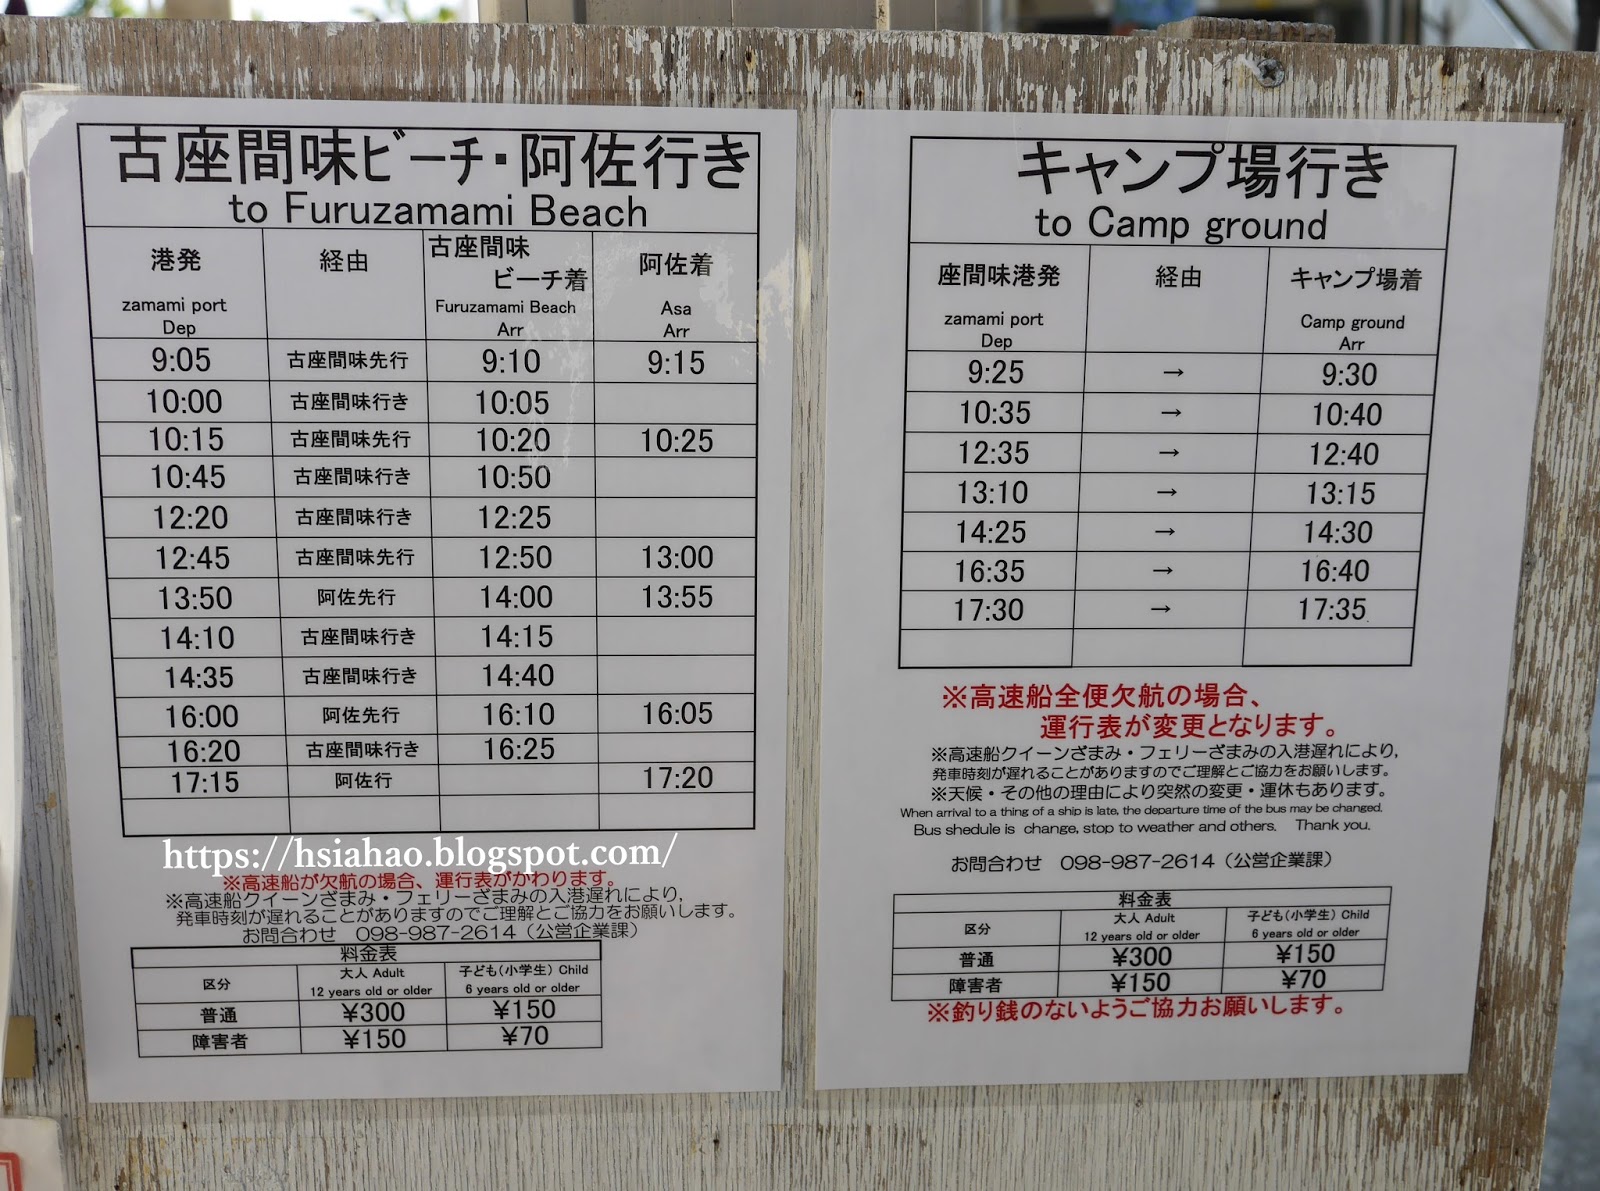 古座間味ビーチ・阿佐行き
to Furuzamami Beach
港発 経由 古座間味 阿佐着
ビーチ着
zamami port Furuzamami Beach Asa
Dep Arr Arr
9:05 古座間味先行 9:10 9:15
10:00 古座間味行き 10:05
10:15 古座間味先行 10:20 10:25
10:45 古座間味行き 10:50
12:20 古座間味行き 12:25
12:45 古座間味先行 12:50 13:00
13:50 阿佐先行 14:00 13:55
14:10 古座間味行き 14:15
14:35 古座間味行き 14:40
16:00 阿佐先行 16:10 16:05
16:20 古座間味行き 16:25
17:15 阿佐行 17:20
https://hsiahao.blogspot.com/
※高速船が欠航の場合、運行表がかわります。
※高速船クイーンざまみ・フェリーざまみの入港遅れにより,
発車時刻が遅れることがありますのでご理解とご協力をお願いします。
お問合わせ 098-987-2614（公営企業課）
料金表
区分 大人 Adult 子ども(小学生) Child
12 years old or older 6 years old or older
普通 ¥300 ¥150
障害者 ¥150 ¥70
キャンプ場行き
to Camp ground
座間味港発 経由 キャンプ場着
zamami port Camp ground
Dep Arr
9:25 → 9:30
10:35 → 10:40
12:35 → 12:40
13:10 → 13:15
14:25 → 14:30
16:35 → 16:40
17:30 → 17:35
※高速船全便欠航の場合、
運行表が変更となります。
※高速船クイーンざまみ・フェリーざまみの入港遅れにより,
発車時刻が遅れることがありますのでご理解とご協力をお願いします。
※天候・その他の理由により突然の変更・運休もあります。
When arrival to a thing of a ship is late, the departure time of the bus may be changed.
Bus shedule is change, stop to weather and others. Thank you.
お問合わせ 098-987-2614（公営企業課）
料金表
区分 大人 Adult 子ども(小学生) Child
12 years old or older 6 years old or older
普通 ¥300 ¥150
障害者 ¥150 ¥70
※釣り銭のないようご協力お願いします。